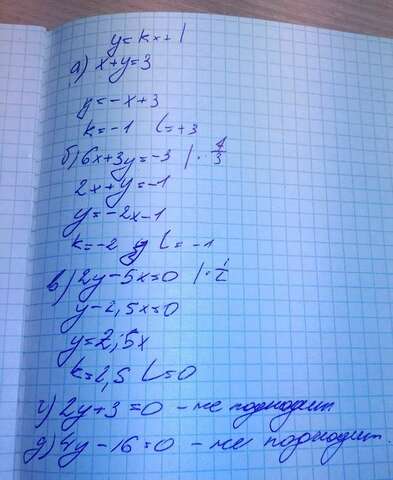 y = kx + l
а) x+y=3
y=-x+3
k=-1 l=+3
б) 6x+3y=-3 | · 1/3
2x+y=-1
y=-2x-1
k=-2 l=-1
в) 2y-5x=0 | · 1/2
y-2,5x=0
y=2,5x
k=2,5 l=0
г) 2y+3=0 - не подходит
д) 4y-16=0 - не подходит.